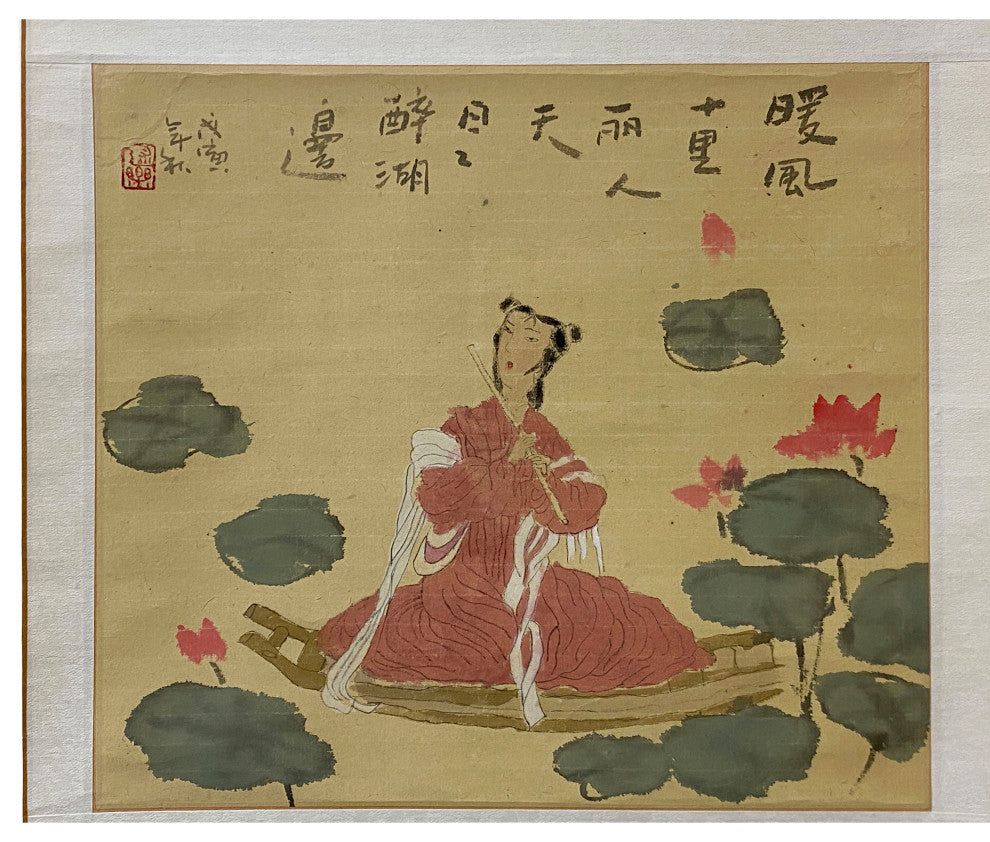 暖風
十里
丽人
天
日々
醉湖
邊
戊寅
年秋